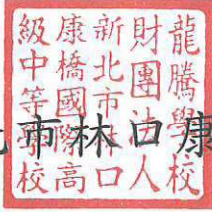 龍騰學校
財團法人
新北市林口
康橋國際高
級中等學校
北市林口康